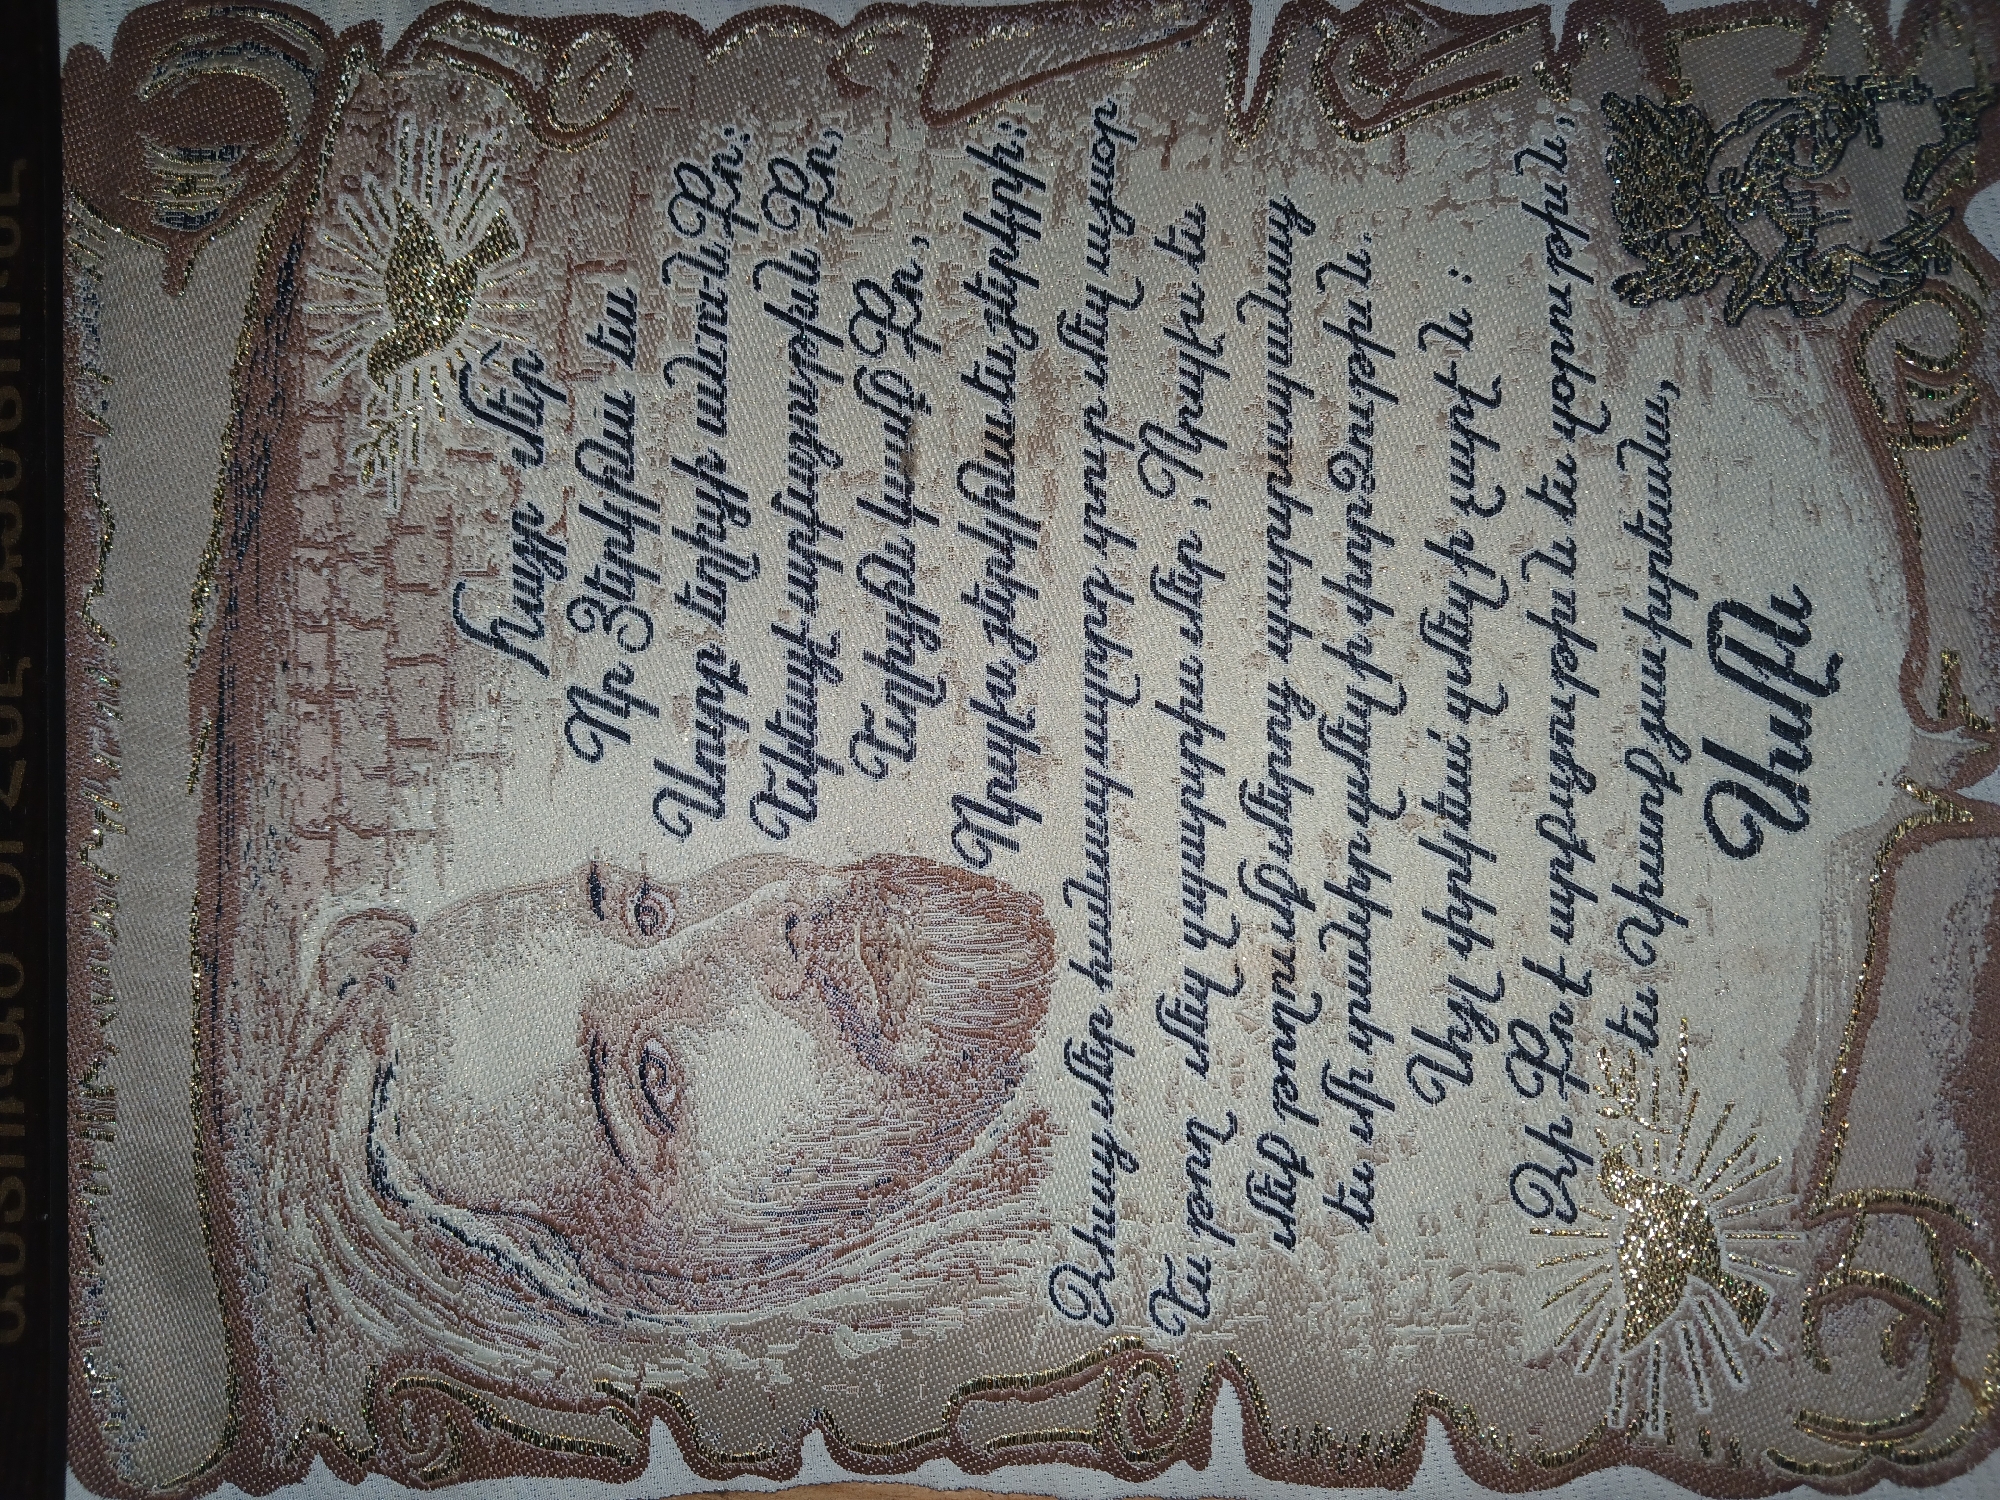 Հայր մեր
Որ Յերկինս ես
Սուրբ եղիցի անուն Քո:
Եկեսցէ արքայութիւն Քո,
Եղիցին կամք Քո,
Որպէս յերկինս եւ յերկրի:
Զհաց մեր հանապազորդ տուր մեզ այսօր
Եւ թող մեզ զպարտիս մեր, Որպէս եւ
մեք թողումք մերոց պարտապանաց
եւ մի տանիր զմեզ ի փորձութիւն.
Այլ փրկեա՛ զմեզ ի չարէ ն:
Զի Քո է արքայութիւն եւ զօրութիւն,
եւ Փառք յաւիտեանս,
Ամէն